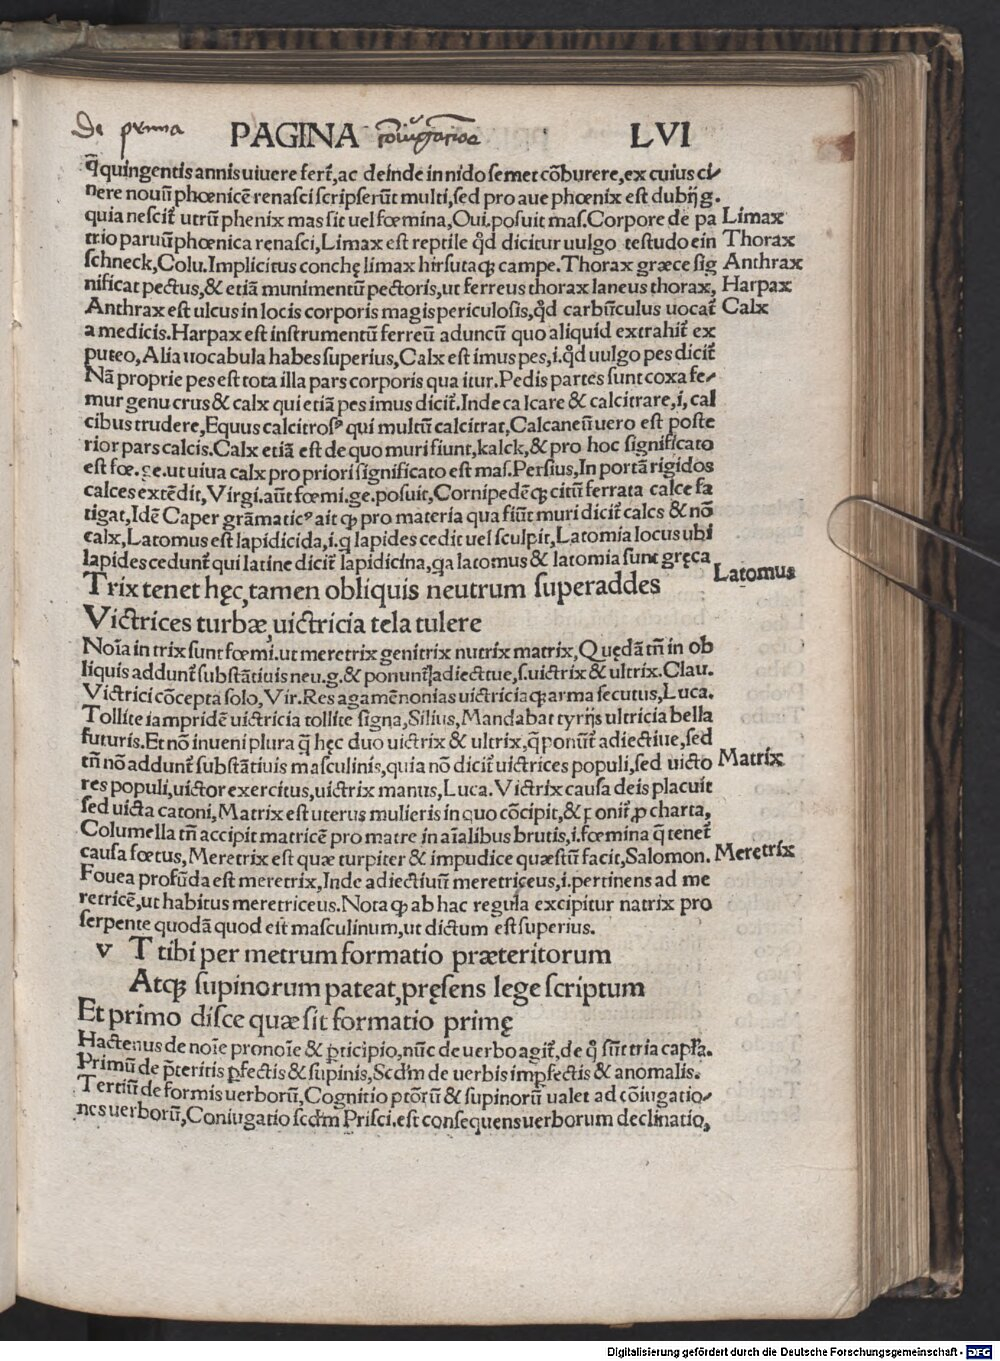 De prima PAGINA coniugatione LVI
q̃ quingentis annis uiuere fert̃, ac deinde in nido semet cõburere, ex cuius ci⸗
nere nouũ phœnicẽ renasci scripserũt multi, sed pro aue phœnix est dubij g.
quia nescit̃ utrũ phenix mas sit uel fœmina, Oui. posuit mas. Corpore de pa Limax
trio paruũ phœnica renasci, Limax est reptile q̃d dicitur uulgo testudo ein Thorax
schneck, Colu. Implicitus conchę limax hirsutaqꝫ campe. Thorax græce sig Anthrax
nificat pectus, & etiã munimentũ pectoris, ut ferreus thorax laneus thorax, Harpax
Anthrax est ulcus in locis corporis magis periculosis, q̃d carbũculus uocat̃ Calx
a medicis. Harpax est instrumentũ ferreũ aduncũ quo aliquid extrahit̃ ex
puteo, Alia uocabula habes superius, Calx est imus pes, i. q̃d uulgo pes dicit̃
Nã proprie pes est tota illa pars corporis qua itur. Pedis partes sunt coxa fe⸗
mur genu crus & calx qui etiã pes imus dicit̃. Inde ca lcare & calcitrare, i, cal
cibus trudere, Equus calcitrosꝰ qui multũ calcitrat, Calcaneũ uero est poste
rior pars calcis. Calx etiã est de quo muri fiunt, kalck, & pro hoc significato
est fœ. ge. ut uiua calx pro priori significato est mas. Persius, In portã rigidos
calces extẽdit, Virgi. aũt fœmi. ge. posuit, Cornipedẽqꝫ citũ ferrata calce fa
tigat, Idẽ Caper grãmaticꝰ ait qꝫ pro materia qua fiũt muri dicit̃ calcs & nõ
calx, Latomus est lapidicida, i. q lapides cedit uel sculpit, Latomia locus ubi
lapides cedunt̃ qui latine dicit̃ lapidicina, qa latomus & latomia sunt gręca
Trix tenet hęc, tamen obliquis neutrum superaddes Latomus
Victrices turbæ, uictricia tela tulere
Noĩa in trix sunt fœmi. ut meretrix genitrix nutrix matrix, Quędã tñ in ob
liquis addunt̃ substãtiuis neu. g. & ponunt̃ adiectiue, s. uictrix & ultrix. Clau.
Victrici cõcepta solo, Vir. Res agamẽnonias uictriciaqꝫ arma secutus, Luca.
Tollite iampridẽ uictricia tollite signa, Silius, Mandabat tyrijs ultricia bella
futuris. Et nõ inueni plura q̃ hęc duo uictrix & ultrix, q̃ ponũt̃ adiectiue, sed
tñ nõ addunt̃ substãtiuis masculinis, quia nõ dicit̃ uictrices populi, sed uicto Matrix
res populi, uictor exercitus, uictrix manus, Luca. Victrix causa deis placuit
sed uicta catoni, Matrix est uterus mulieris in quo cõcipit, & ponit̃ ꝓ charta,
Columella tñ accipit matricẽ pro matre in aĩalibus brutis, i. fœmina q̃ tenet̃
causa fœtus, Meretrix est quæ turpiter & impudice quæstũ facit, Salomon. Meretrix
Fouea profũda est meretrix, Inde adiectiuũ meretriceus, i. pertinens ad me
retricẽ, ut habitus meretriceus. Nota qꝫ ab hac regula excipitur natrix pro
serpente quodã quod eſt masculinum, ut dictum est superius.
v T tibi per metrum formatio præteritorum
Atqꝫ supinorum pateat, pręsens lege scriptum
Et primo disce quæ sit formatio primę
Hactenus de noĩe pronoĩe & p̃ticipio, nũc de uerbo agit̃, de q̊ sũt tria capl̃a.
Primũ de p̃teritis ꝑfectis & supinis, Scd̃m de uerbis imꝑfectis & anomalis.
Tertiũ de formis uerborũ, Cognitio p̃torũ & supinorũ ualet ad cõiugatio⸗
nes uerborũ, Coniugatio scd̃m Prisci. est consequens uerborum declinatio,
Digitalisierung gefördert durch die Deutsche Forschungsgemeinschaft - DFG